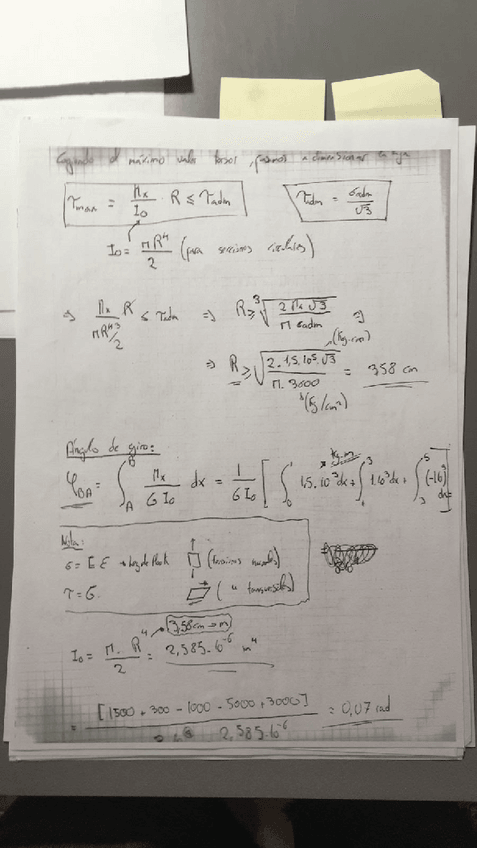 Cogiendo el máximo valor torsor, pasamos a dimensionar la
τmax = Mx/I₀ · R ≤ τadm
τadm = σadm/√3
I₀ = πR⁴/2 (para secciones circulares)
⇒ Mx/(πR⁴³/2) R ≤ τadm ⇒ R ≥ ³√(2 Mx √3 / π σadm) ⇒
(Kg·cm)
⇒ R ≥ ³√(2·1,5·10⁵·√3 / π·3600) = 3,58 cm
(Kg/cm²)
Ángulo de giro:
Kg·m
φBA = ∫_A^B Mx/(G I₀) dx = 1/(G I₀) [ ∫_0^1 1,5·10³dx + ∫_1^3 1·10³dx + ∫_3^5 (-1·10³) dx]
Nota:
σ = E ε → Ley de Hook (tensiones normales)
τ = G· (" transversales)
3,58cm → m
I₀ = π·R⁴/2 = 2,585·10⁻⁶ m⁴
= [1500 + 300 - 1000 - 5000 + 3000] / 2,585·10⁻⁶ = 0,07 rad